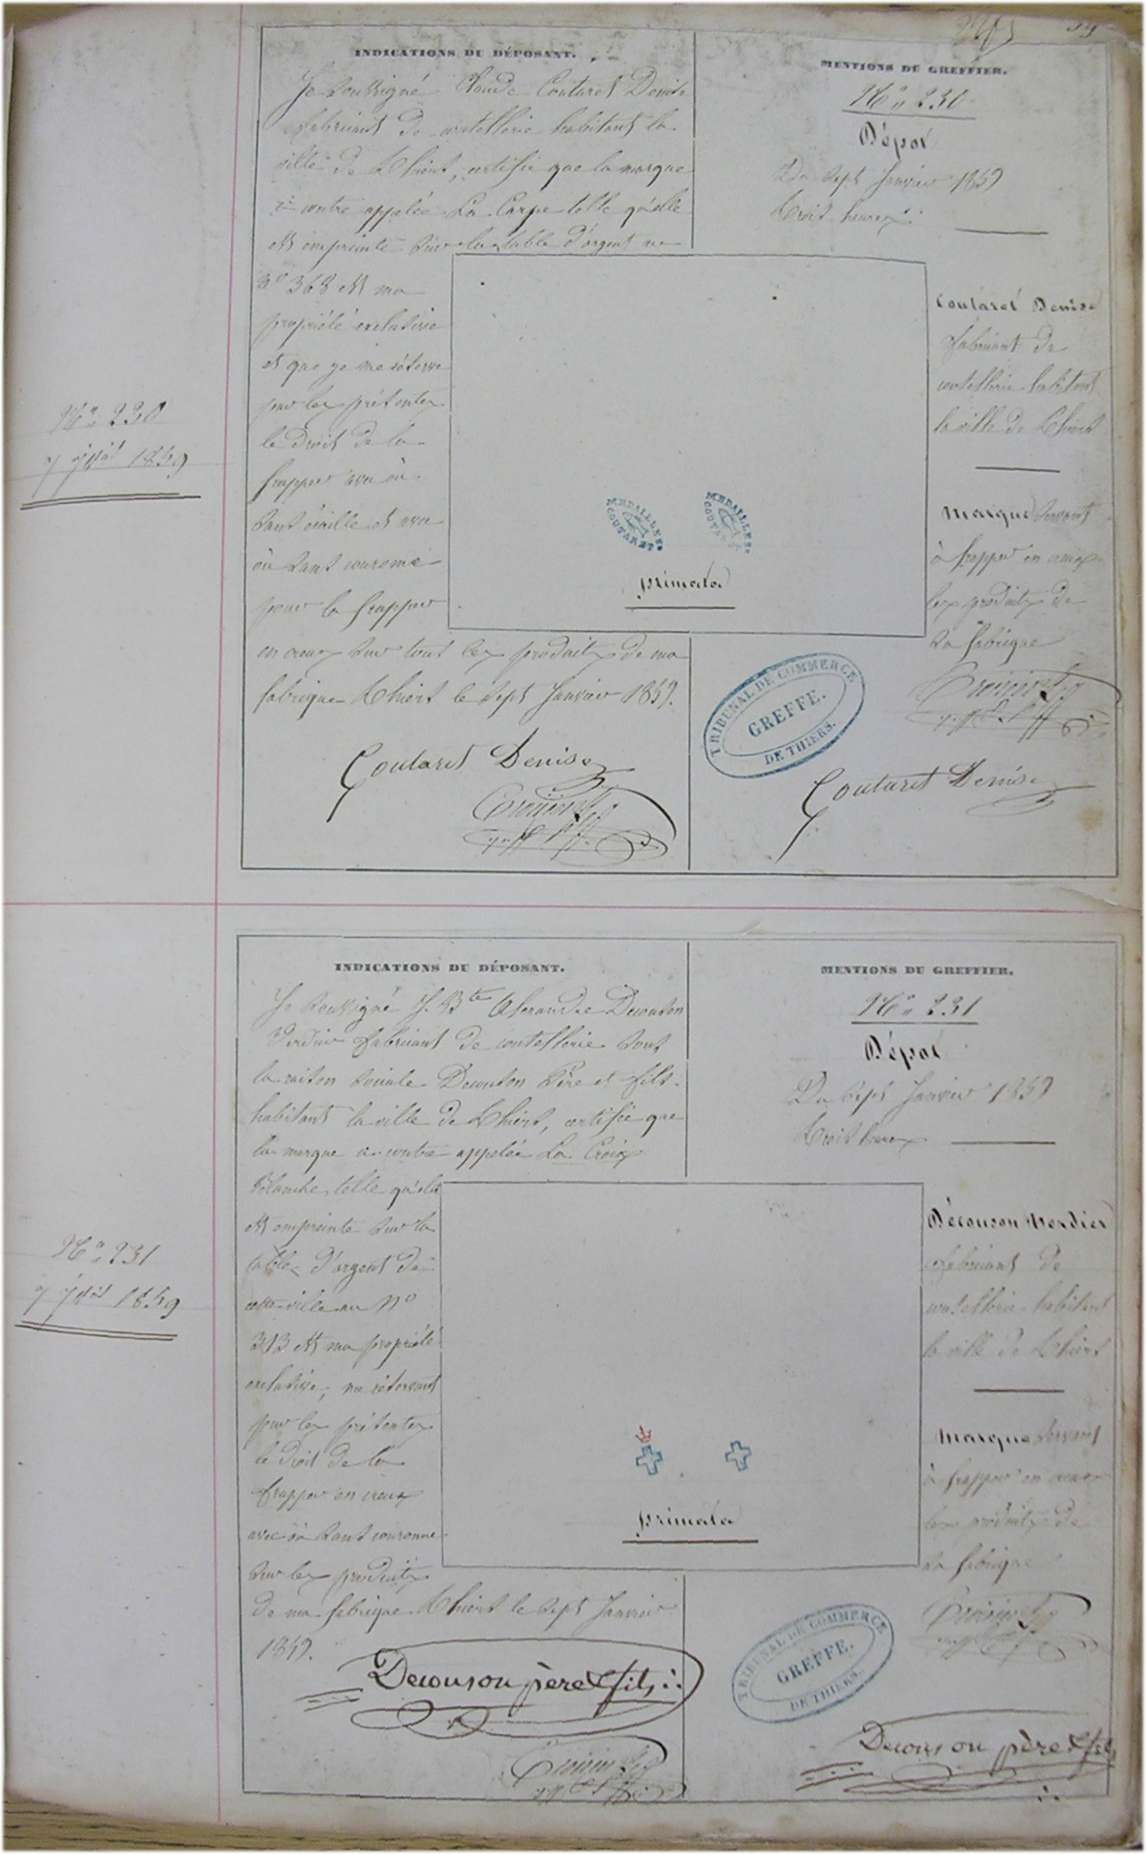 59
INDICATIONS DU DÉPOSANT.
Je soussigné Claude Coutaret Denise
fabricant de coutellerie habitant la
ville de Thiers, certifie que la marque
ci contre appelée La Carpe telle qu'elle
est empreinte sur la table d'argent au
no 368 est ma
propriété exclusive
et que je me réserve
par les présentes
le droit de la
frapper avec ou
sans écaille et avec
ou sans couronne
pour la frapper
en creux sur tous les produits de ma
fabrique Thiers le sept Janvier 1859.
Coutaret Denise
MENTIONS DU GREFFIER.
No 230
Dépot
Du sept Janvier 1859
Trois heures
Coutaret Denise
fabricant de
coutellerie habitant
la ville de Thiers
Marque servant
à frapper en creux
les produits de
sa fabrique
Coutaret Denise
MEDAILLES
COUTARET
MEDAILLES
COUTARET
primata
TRIBUNAL DE COMMERCE
GREFFE.
DE THIERS.
No 230
7 Jer 1859
INDICATIONS DU DÉPOSANT.
Je soussigné J. Bte Alexandre Decouson
Verdier fabricant de coutellerie sous
la raison sociale Decouson Père et fils
habitant la ville de Thiers, certifie que
la marque ci-contre appelée La Croix
Blanche, telle qu'elle
est empreinte sur la
table d'argent de
cette ville au No
313 est ma propriété
exclusive, me réservant
par les présentes
le droit de la
frapper en creux
avec ou sans couronne
sur les produits
de ma fabrique Thiers le sept Janvier
1859.
Decouson père & fils
MENTIONS DU GREFFIER.
No 231
Dépot
Du sept Janvier 1859
Trois heures
Découson Verdier
fabricant de
coutellerie habitant
la ville de Thiers
Marque servant
à frapper en creux
les produits de
sa fabrique
Decouson père & fils
primata
TRIBUNAL DE COMMERCE
GREFFE.
DE THIERS.
No 231
7 Jer 1859